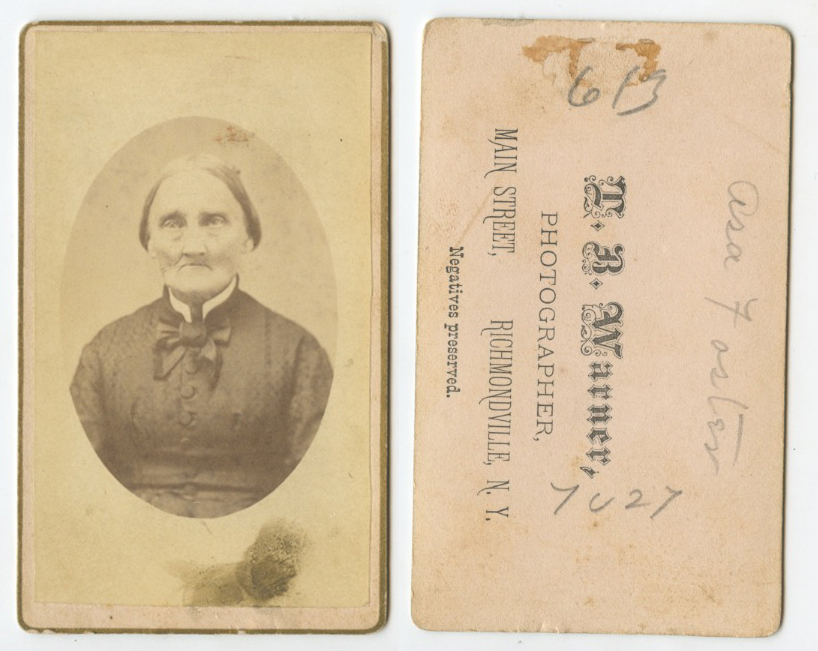 613
Asa Foster
T. B. Warner,
PHOTOGRAPHER,
MAIN STREET, RICHMONDVILLE, N. Y.
Negatives preserved.